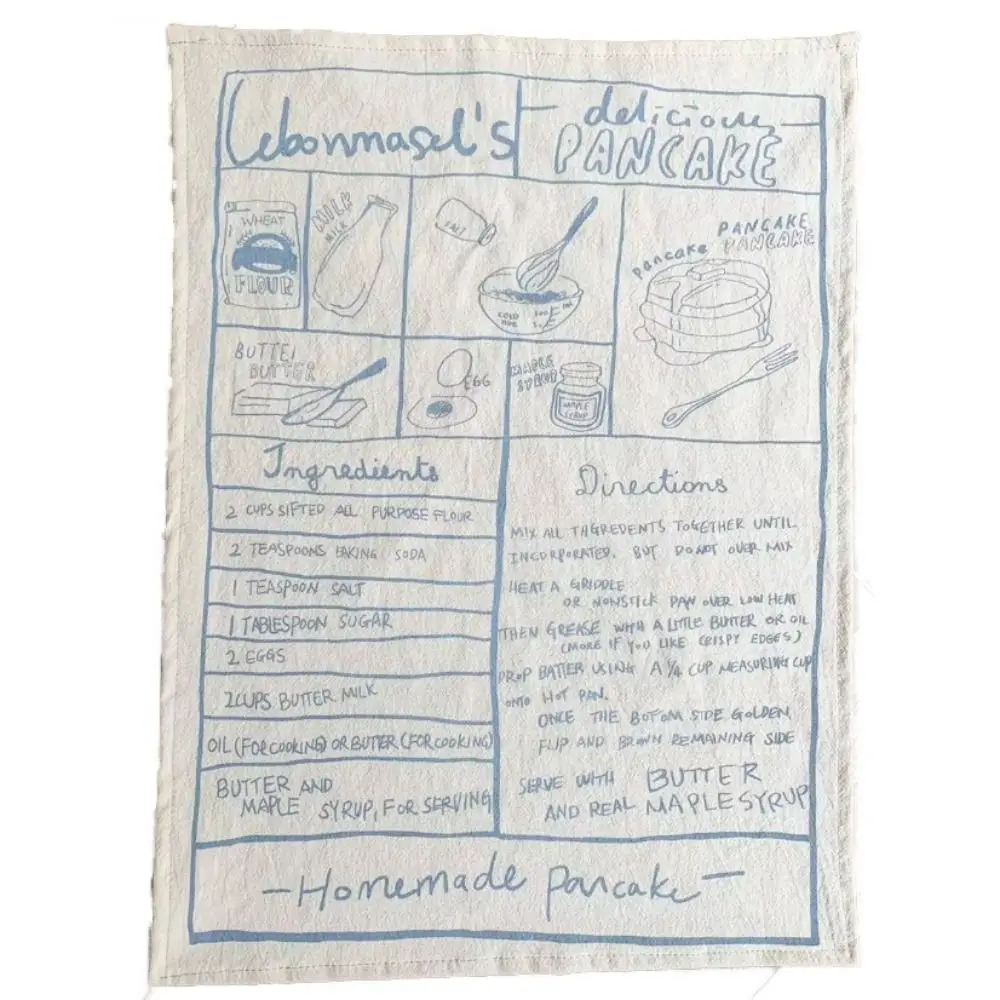 Lebonmasel's
delicious
PANCAKE
WHEAT
FLOUR
MILK
MILK
SALT
PANCAKE
PANCAKE
pancake
BUTTER
EGG
MAPLE
SYRUP
MAPLE
SYRUP
Ingredients
2 CUPS SIFTED ALL PURPOSE FLOUR
2 TEASPOONS BAKING SODA
1 TEASPOON SALT
1 TABLESPOON SUGAR
2 EGGS
2 CUPS BUTTER MILK
OIL (FOR COOKING) OR BUTTER (FOR COOKING)
BUTTER AND
MAPLE SYRUP, FOR SERVING
Directions
MIX ALL THGREDENTS TOGETHER UNTIL
INCORPORATED. BUT DO NOT OVER MIX
HEAT A GRIDDLE
OR NONSTICK PAN OVER LOW HEAT
THEN GREASE WITH A LITTLE BUTTER OR OIL
(MORE IF YOU LIKE CRISPY EDGES)
DROP BATTER USING A 1/4 CUP MEASURING CUP
ONTO HOT PAN.
ONCE THE BOTOM SIDE GOLDEN
FLIP AND BROWN REMAINING SIDE
SERVE WITH BUTTER
AND REAL MAPLE SYRUP
-Homemade pancake-